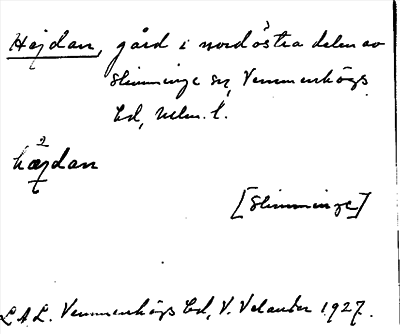 Hejdan, gård i nordöstra delen av
Slimminge sn, Vemmenhögs
hd, Mlm. l.
hæjdan
[Slimminge]
L.A.L. Vemmenhögs hd, V. Velander 1927.